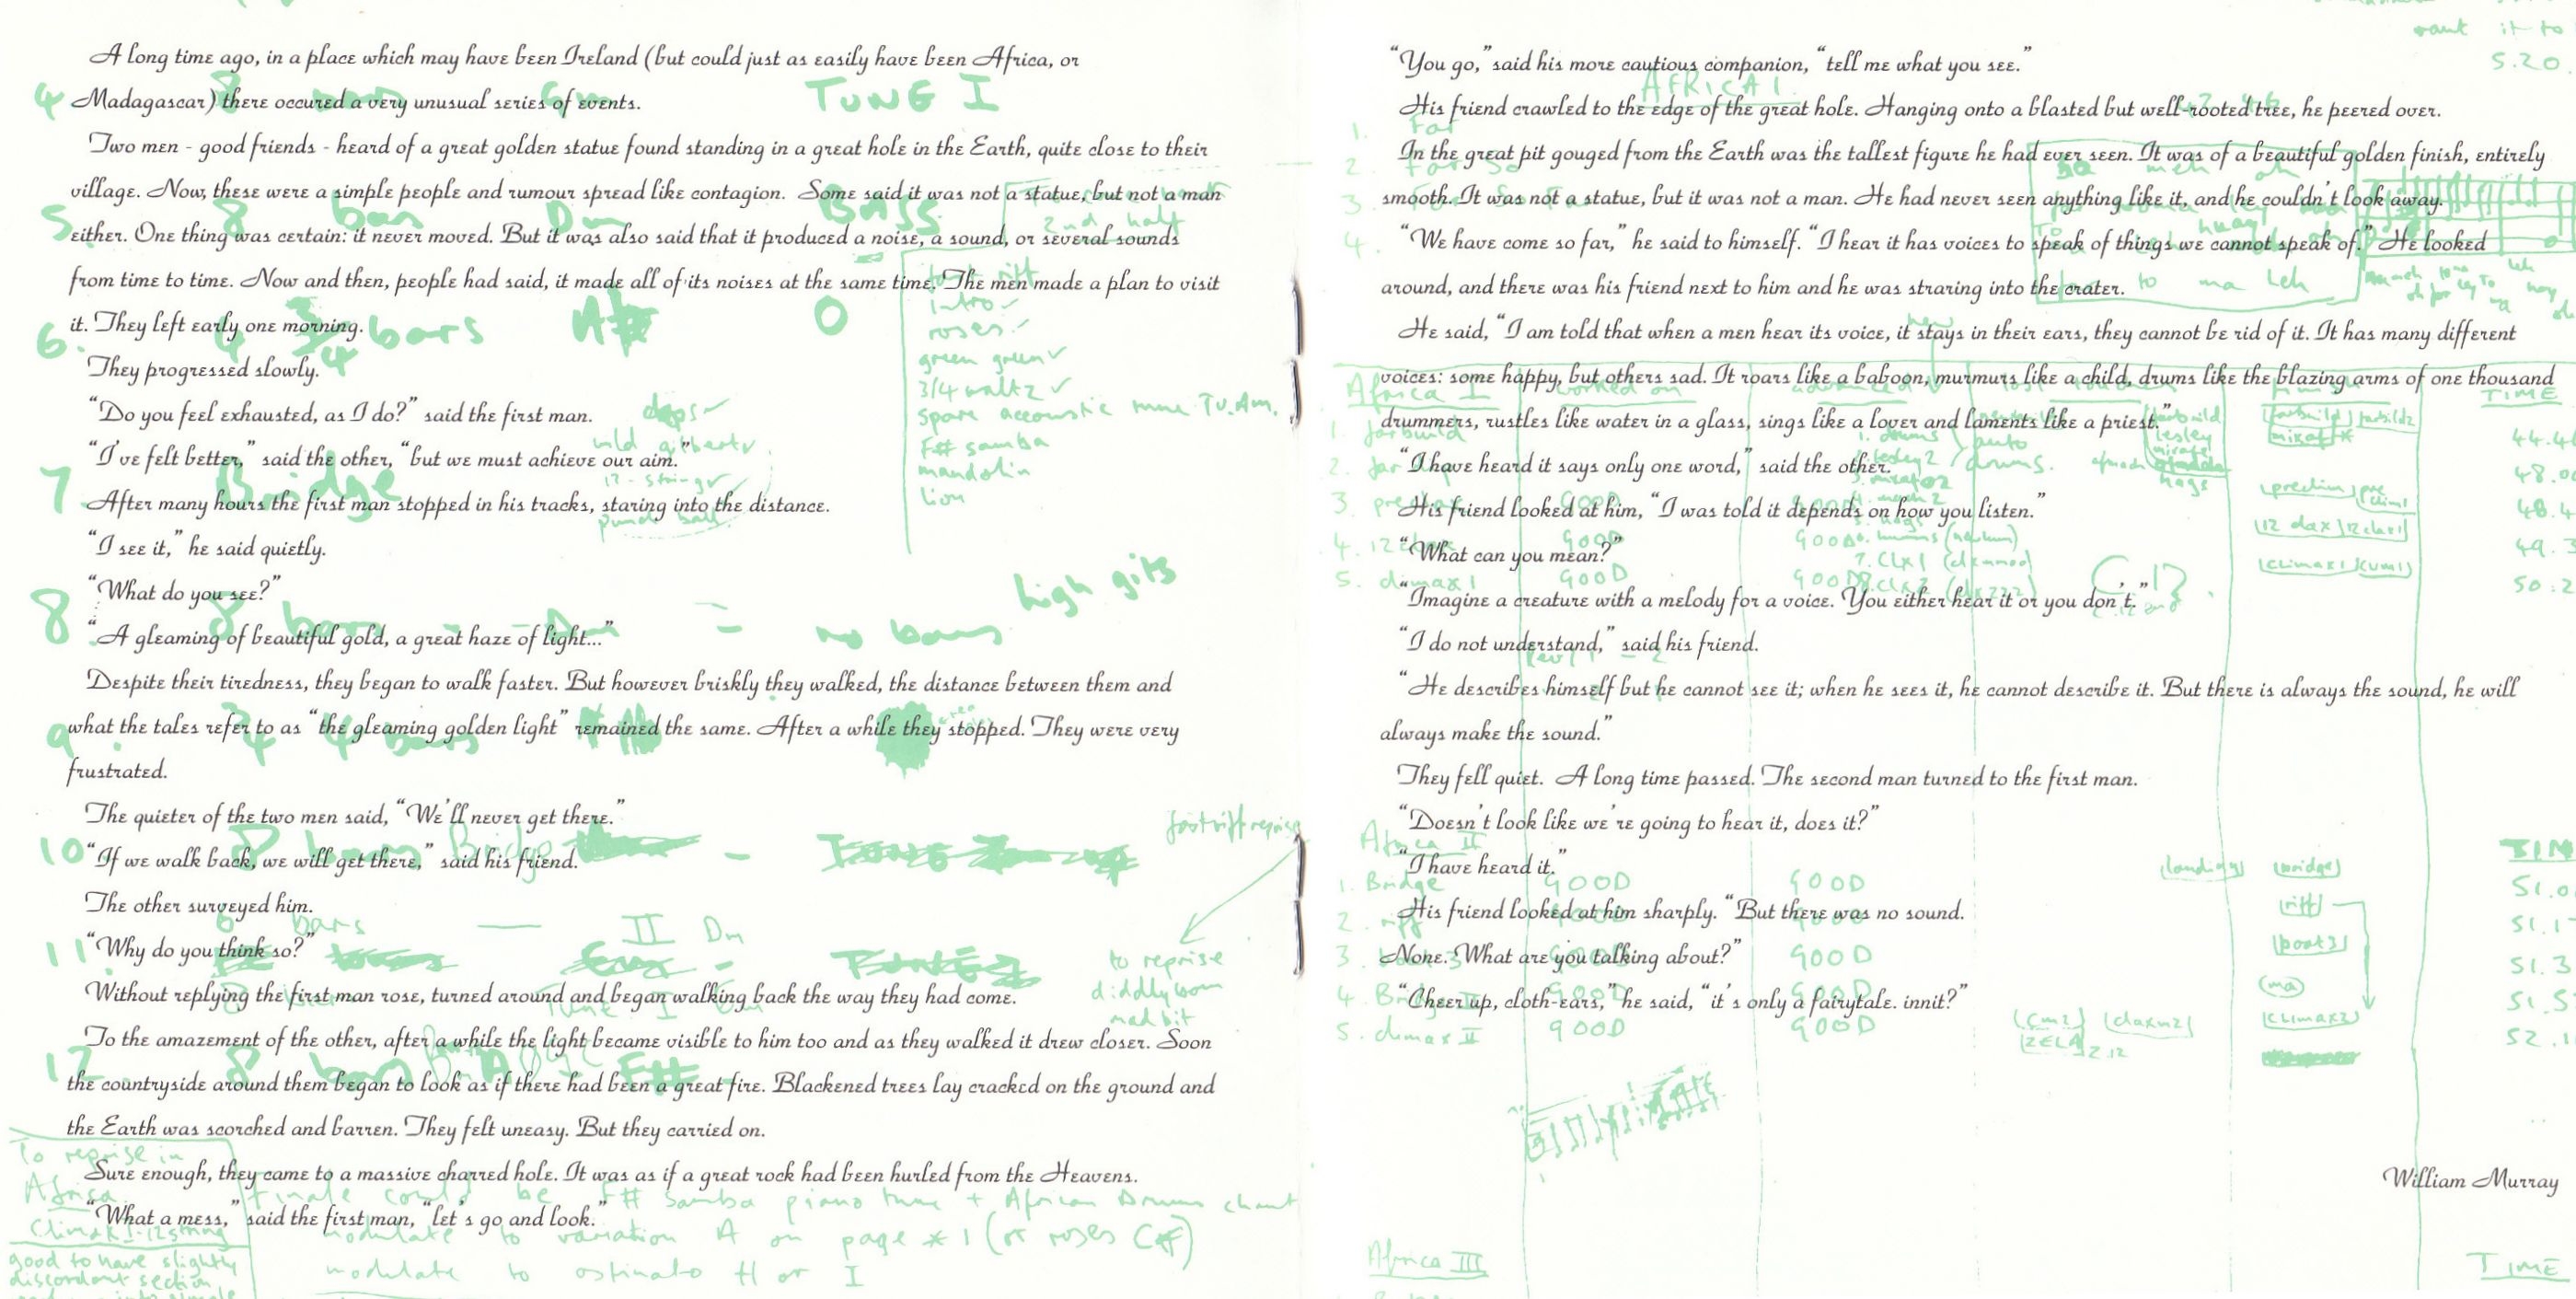 A long time ago, in a place which may have been Ireland (but could just as easily have been Africa, or
Madagascar) there occured a very unusual series of events.
Two men - good friends - heard of a great golden statue found standing in a great hole in the Earth, quite close to their
village. Now, these were a simple people and rumour spread like contagion. Some said it was not a statue, but not a man
either. One thing was certain: it never moved. But it was also said that it produced a noise, a sound, or several sounds
from time to time. Now and then, people had said, it made all of its noises at the same time. The men made a plan to visit
it. They left early one morning.
They progressed slowly.
“Do you feel exhausted, as I do?” said the first man.
“I've felt better,” said the other, “but we must achieve our aim.”
After many hours the first man stopped in his tracks, staring into the distance.
“I see it,” he said quietly.
“What do you see?”
“A gleaming of beautiful gold, a great haze of light...”
Despite their tiredness, they began to walk faster. But however briskly they walked, the distance between them and
what the tales refer to as “the gleaming golden light” remained the same. After a while they stopped. They were very
frustrated.
The quieter of the two men said, “We'll never get there.”
“If we walk back, we will get there,” said his friend.
The other surveyed him.
“Why do you think so?”
Without replying the first man rose, turned around and began walking back the way they had come.
To the amazement of the other, after a while the light became visible to him too and as they walked it drew closer. Soon
the countryside around them began to look as if there had been a great fire. Blackened trees lay cracked on the ground and
the Earth was scorched and barren. They felt uneasy. But they carried on.
Sure enough, they came to a massive charred hole. It was as if a great rock had been hurled from the Heavens.
“What a mess,” said the first man, “let's go and look.”
4
TUNE I
5 8 bars Dm BASS
2nd half
6. 4 3/4 bars A# O
intro
roses
green green
3/4 waltz
spare accoustic tune
F# samba
mandolin
lion
7 Bridge
12-string
high gits
8 8 bars - Dm - no bars
9. 4 bars
10 8 bars Bridge
11. 6 bars II Dm
to reprise
diddlybom
mad bit
12. 8 bars F#
To reprise in
Africa
Climax I-12 string
good to have slightly
discordant section
finale could be F# samba piano tune + African Drums chant
modulate to variation A on page * 1 (or roses C#)
modulate to ostinato H or I
“You go,” said his more cautious companion, “tell me what you see.”
His friend crawled to the edge of the great hole. Hanging onto a blasted but well-rooted tree, he peered over.
In the great pit gouged from the Earth was the tallest figure he had ever seen. It was of a beautiful golden finish, entirely
smooth. It was not a statue, but it was not a man. He had never seen anything like it, and he couldn't look away.
“We have come so far,” he said to himself. “I hear it has voices to speak of things we cannot speak of.” He looked
around, and there was his friend next to him and he was straring into the crater.
He said, “I am told that when a men hear its voice, it stays in their ears, they cannot be rid of it. It has many different
voices: some happy, but others sad. It roars like a baboon, murmurs like a child, drums like the blazing arms of one thousand
drummers, rustles like water in a glass, sings like a lover and laments like a priest.”
“I have heard it says only one word,” said the other.
His friend looked at him, “I was told it depends on how you listen.”
“What can you mean?”
“Imagine a creature with a melody for a voice. You either hear it or you don't.”
“I do not understand,” said his friend.
“He describes himself but he cannot see it; when he sees it, he cannot describe it. But there is always the sound, he will
always make the sound.”
They fell quiet. A long time passed. The second man turned to the first man.
“Doesn't look like we're going to hear it, does it?”
“I have heard it.”
His friend looked at him sharply. “But there was no sound.
None. What are you talking about?”
“Cheer up, cloth-ears,” he said, “it's only a fairytale. innit?”
William Murray
want it to
5.20
AFRICA I
to ma Leh
Africa I
TIME
5. climax 1 GOOD
Africa II
1. Bridge GOOD GOOD (bridge)
2. riff (riff)
3. GOOD
4.
5. climax II GOOD GOOD (climax2)
Africa III
TIME